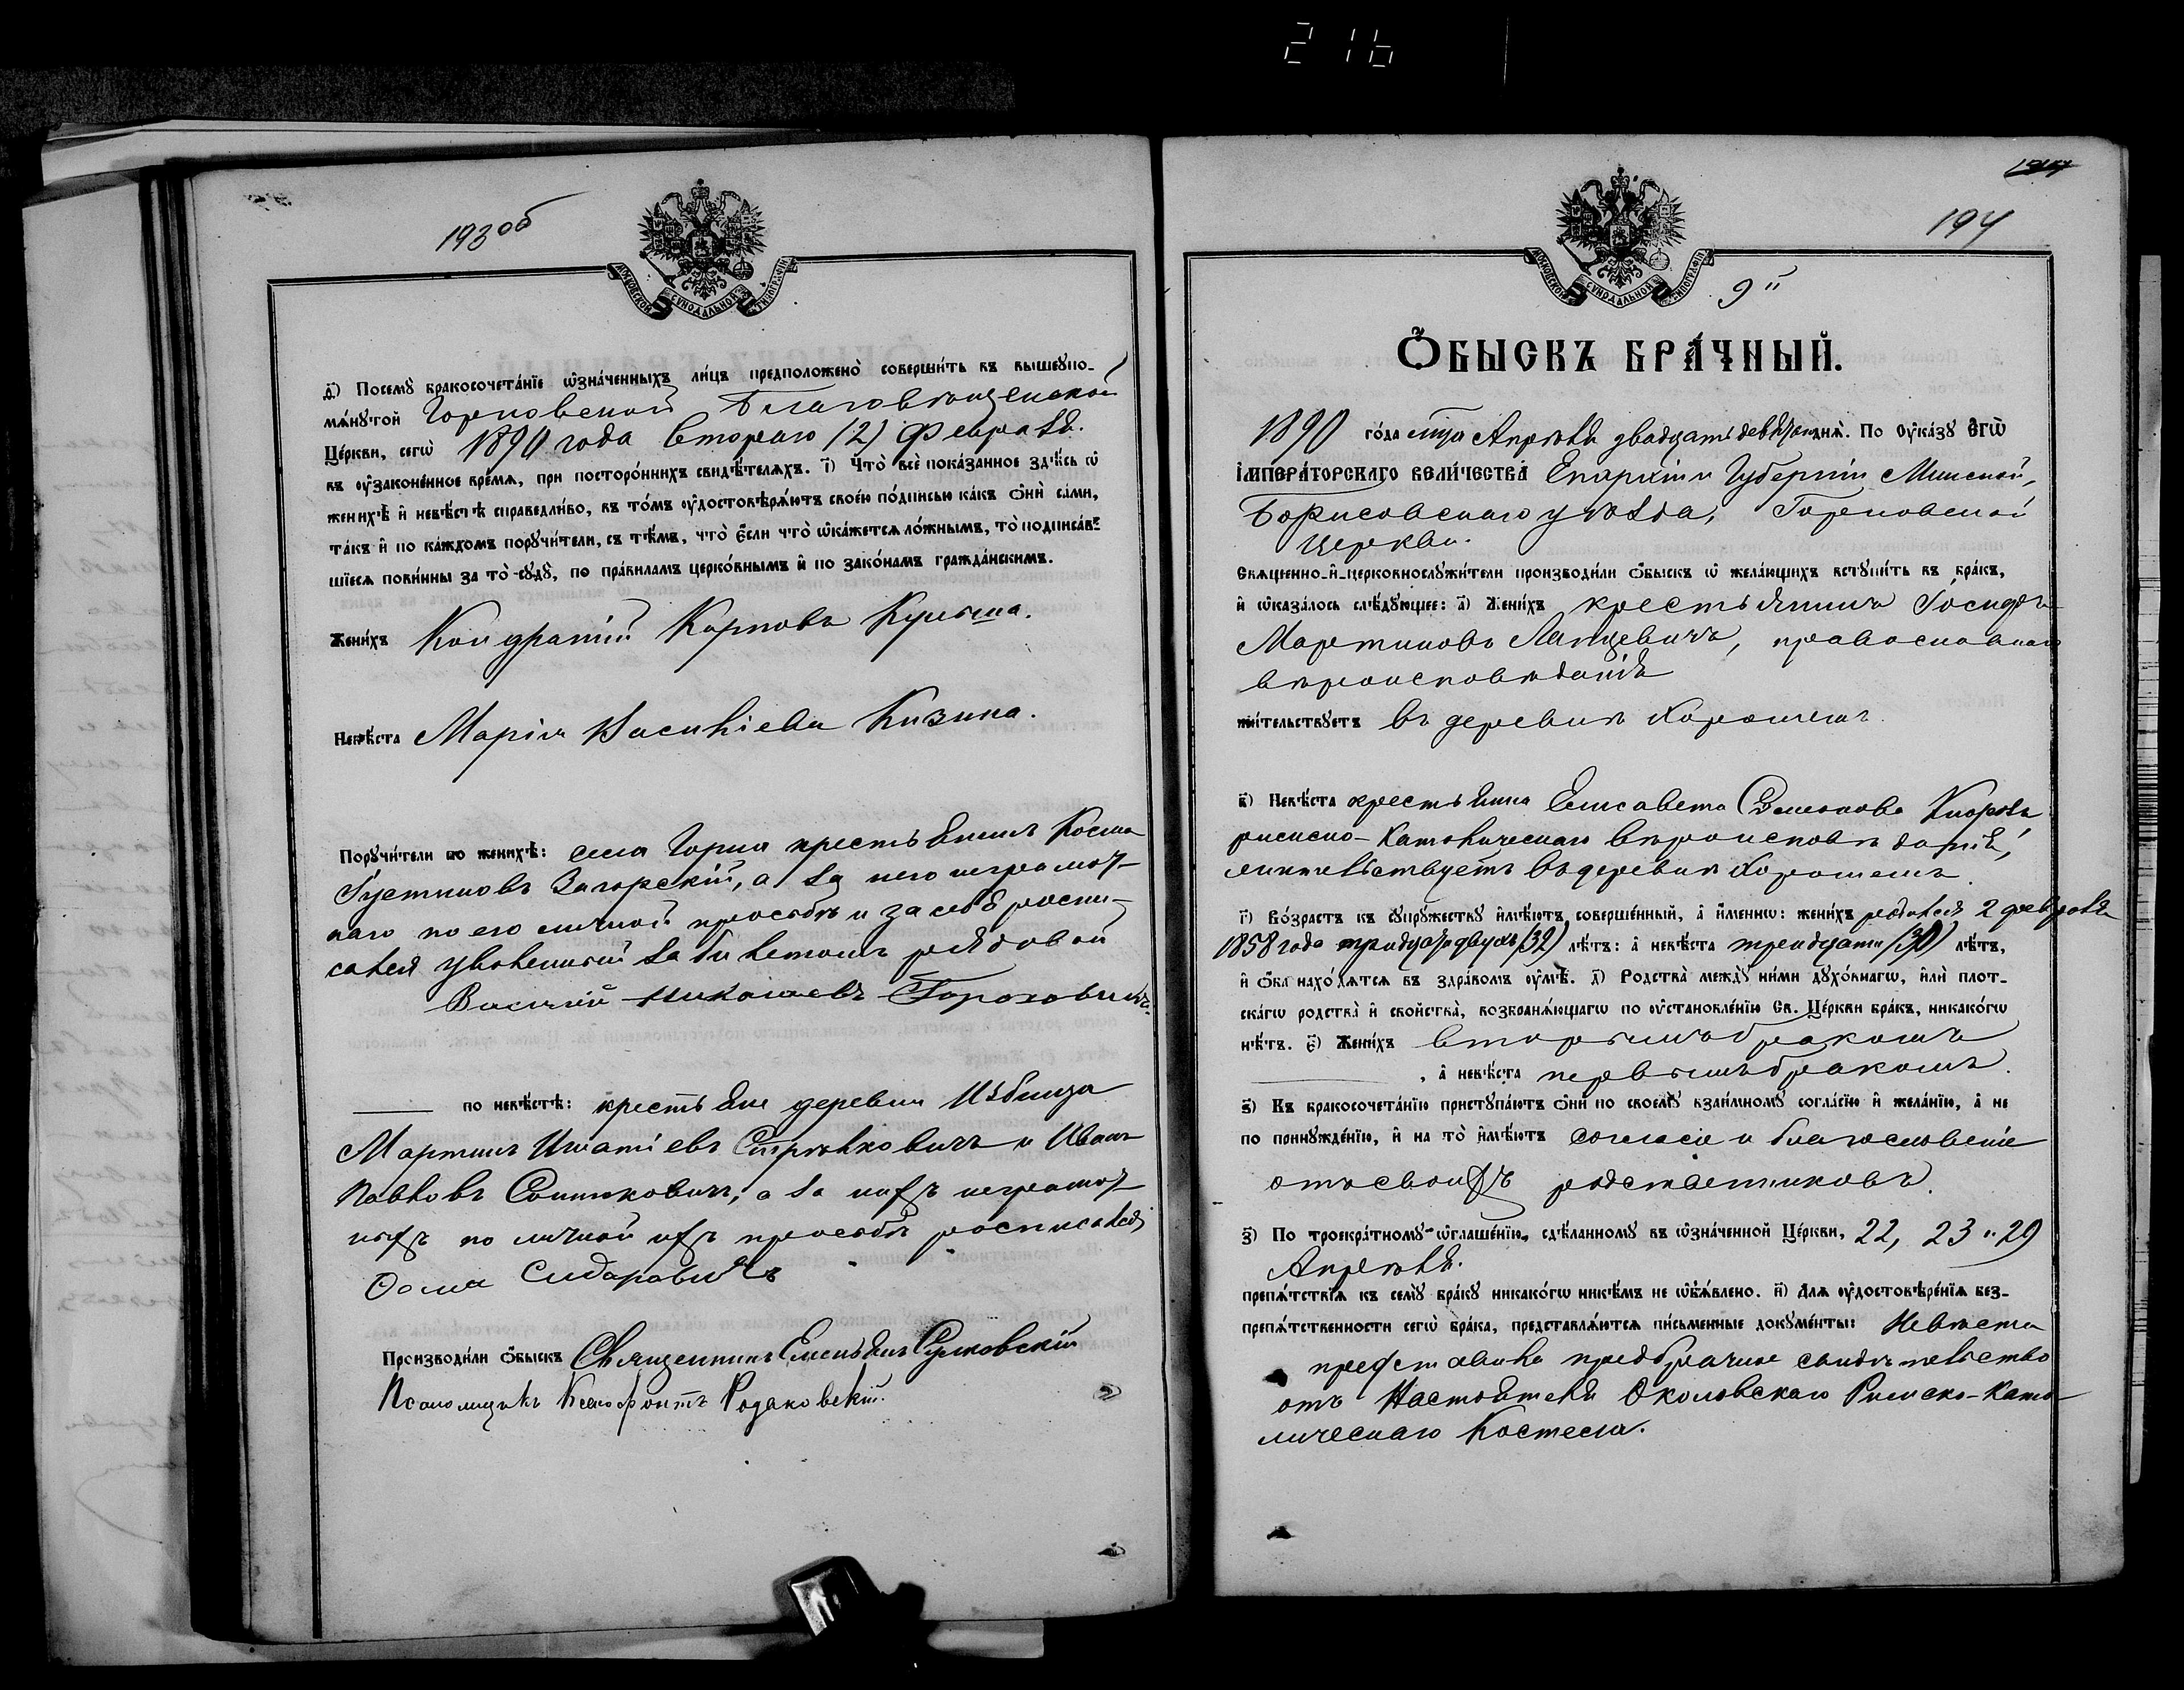 216
193об
МОСКОВСКОЙ СУНОДАЛЬНОЙ ТИПОГРАФІИ
д҃) Посемꙋ̀ бракосочета́нїе ѡ҆зна́ченныхъ ли́цъ предположено̀ соверши́ть въ вышеꙋпо-
мѧ́нꙋтой Горновской Благовѣщенской
Це́ркви, сегѡ̀ 1890 года втораго (2) Февраля.
въ ᲂу҆зако́ненное вре́мѧ, при посторо́ннихъ свидѣ́телѧхъ. і҃) Что̀ всѐ пока́занное здѣ́сь ѡ҆
женихѣ̀ и҆ невѣ́стѣ справедли́во, въ то́мъ ᲂу҆достовѣрѧ́ютъ свое́ю по́дписью ка́къ ѻ҆нѝ са́ми,
та́къ и҆ по ка́ждомъ порꙋчи́тели, съ тѣ́мъ, что̀ є҆́сли что̀ ѡ҆ка́жетсѧ ло́жнымъ, то̀ подписа́в-
шїесѧ пови́нны за то̀ сꙋдꙋ̀, по пра́виламъ церко́внымъ и҆ по зако́намъ гражда́нскимъ.
Жени́хъ Кондратій Карповъ Кульша.
Невѣ́ста Марія Васильева Кизина.
Порꙋчи́тели по женихѣ̀: села Горна крестьянинъ Косма
Іустиновъ Загорскій, а за него неграмот-
наго по его личной просьбѣ и за себя роспи-
сался уволенный за билетомъ рядовой
Василій Николаевъ Гороховикъ.
по невѣ́стѣ: крестьяне деревни Избища
Мартинъ Игнатіевъ Стрѣльковичъ и Иванъ
Павловъ Сошниковичъ, а за нихъ неграмот-
ныхъ по личной ихъ просьбѣ росписался
Ѳома Сидаровичъ
Производи́ли ѻ҆́быскъ Священникъ Емельянъ Сулковскій
Псаломщикъ Ксенофонтъ Родаковскій.
194
МОСКОВСКОЙ СУНОДАЛЬНОЙ ТИПОГРАФІИ
9й
Ѻ҆́БЫСКЪ БРА́ЧНЫЙ.
1890 го́да мца Апрѣля двадцать девятаго днѧ̀. По ᲂу҆ка́зꙋ Є҆ГѠ̀
И҆МПЕРА́ТОРСКАГО ВЕЛИ́ЧЕСТВА Епархіи и Губерніи Минской,
Борисовскаго уѣзда, Горновской
Церкви.
Свѧще́нно-и҆-церковнослꙋжи́тели производи́ли ѻ҆́быскъ ѡ҆ жела́ющихъ встꙋпи́ть въ бра́къ,
и҆ ѡ҆каза́лось слѣ́дꙋющее: а҃) Жени́хъ крестьянинъ Іосифъ
Мартиновъ Лапцевичъ, православнаго
вѣроисповѣданія
жи́тельствꙋетъ въ деревнѣ Хорошемъ.
в҃) Невѣ́ста крестьянка Елисавета Семенова Кноровъ
римско-Католическаго вѣроисповѣданія,
жительствуетъ въ деревнѣ Хорошемъ
г҃) Во́зрастъ къ сꙋпрꙋ́жествꙋ и҆мѣ́ютъ соверше́нный, а҆ и҆́менно: жени́хъ родился 2 февраля
1858 года тридцати двухъ (32) лѣ́тъ: а҆ невѣ́ста тридцати (30) лѣ́тъ,
и҆ ѻ҆́ба нахо́дѧтсѧ въ здра́вомъ ᲂу҆мѣ̀. д҃) Родства̀ междꙋ̀ ни́ми дꙋхо́внагѡ, и҆лѝ плот-
ска́гѡ родства̀ и҆ сво́йства, возбранѧ́ющагѡ по ᲂу҆становле́нїю Св. Це́ркви бра́къ, никако́гѡ
нѣ́тъ. є҃) Жени́хъ вторымъ бракомъ
, а҆ невѣ́ста первымъ бракомъ.
ѕ҃) Къ бракосочета́нїю пристꙋпа́ютъ ѻ҆нѝ по своемꙋ̀ взаи́мномꙋ согла́сїю и҆ жела́нїю, а҆ не
по принꙋжде́нїю, и҆ на то̀ и҆мѣ́ютъ согласіе и благословеніе
отъ своихъ родственниковъ.
з҃) По троекра́тномꙋ ѡ҆глаше́нїю, сдѣ́ланномꙋ въ ѡ҆зна́ченной Це́ркви, 22, 23 и 29
Апрѣля.
препѧ́тствїѧ къ семꙋ̀ бра́кꙋ никако́гѡ никѣ́мъ не ѡ҆б̾ѧ́влено. и҃) Длѧ ᲂу҆достовѣре́нїѧ без-
препѧ́тственности сегѡ̀ бра́ка, представлѧ́ютсѧ пи́сьменные докꙋме́нты: Невѣста
представила предбрачное свидѣтельство
отъ Настоятеля Околовскаго Римско-Като-
лическаго Костела.